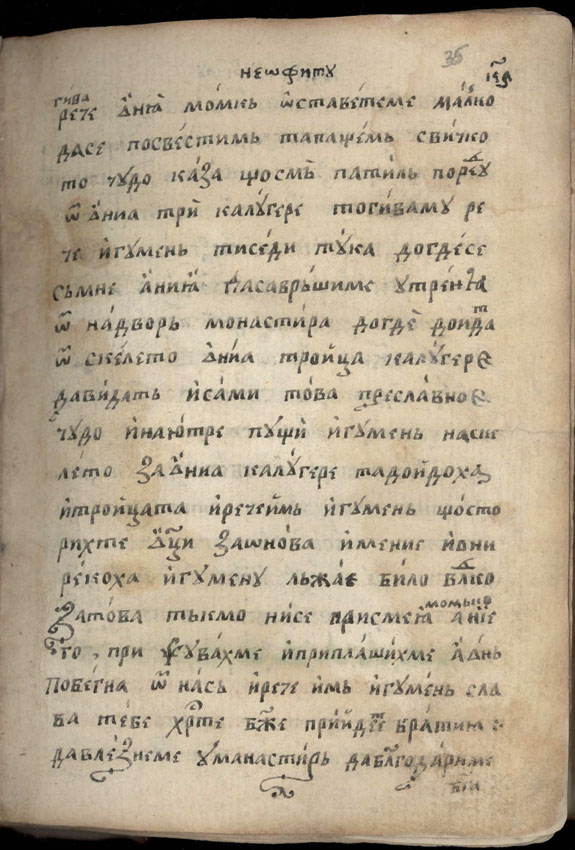 35
неѡфиту
гива
рече ѻнїа момкь ѿставетеме малко
дасе посвестимь тапащемь свичко
то чудо каза щосмь патиль
ѿ ѻниа три калугере тогиваму ре
че игумень тиседи тука догдесе
съмне ѻнїа дасаврьшиме утренїа
ѿ надворь монастира догде доидат
ѿ скелето ѻниа троица калугере
давидать исами това преславное
чудо инаютре пущи игумень насе
лето заѻниа калугере тадоидоха
итроицата иречеимь игумень що сто
рихте заѡнова имение иѡни
рекоха игумену льжае било влⷣко
момьцѡ
затова тькмо нисе присмеѧ
го, при ѱувахме иприплашихме
побегна ѿ нась ирече имь игумень сла
ва тебе хрⷭте бж҃е приидете братие
давлезнеме уманастирь даблагодариме
бг҃а